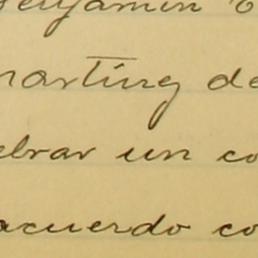 Benjamin
marting de
ebrar un co
acuerdo co